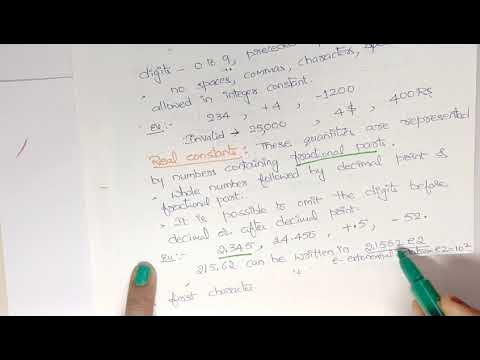 digits - 0 to 9, preceded
no spaces, commas, characters,
allowed in integer constant.
ex:- 234, +4, -1200
Invalid → 25,000, 4$, 400Rs
Real constants:- These quantities are represented
by numbers containing fractional parts.
whole number followed by decimal point &
fractional part.
It is possible to omit the digits before
decimal or after decimal point.
Ex:- 2.345, 24.456, +.5, -52.
215.62 can be written in 2.1562 e2
e- exponential e2=10²
first character